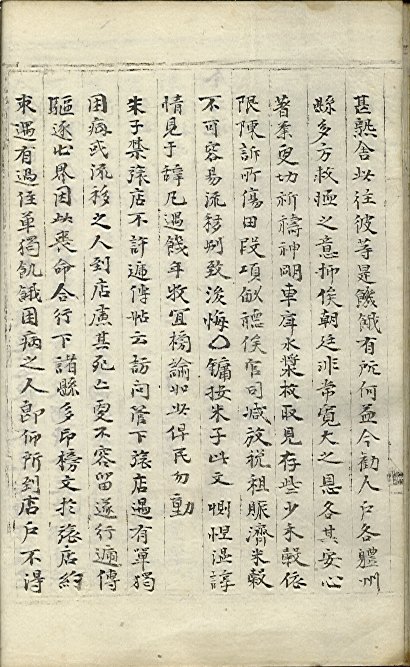 甚熟舍此往彼等是饑餓有所何益今勸人户各體州
縣多方救恤之意抑俟朝廷非常寬大之恩各其安心
著業更切祈禱神明車戽水漿救取見存些少禾穀依
限陳訴所傷田段頃畝聽候官司减放税租賑濟米穀
不可容易流移別致後悔〇鏞按朱子此文惻怛温諄
情見于辭凡遇饑年牧宜榜諭如此俾民勿動
朱子禁旅店不許遞傳帖云訪問管下旅店遇有單獨
困病或流移之人到店慮其死亡更不容留遂行遞傳
驅逐出界因此喪命合行下諸縣多吊榜文於旅店約
束遇有過往單獨飢餓困病之人即仰所到店戶不得